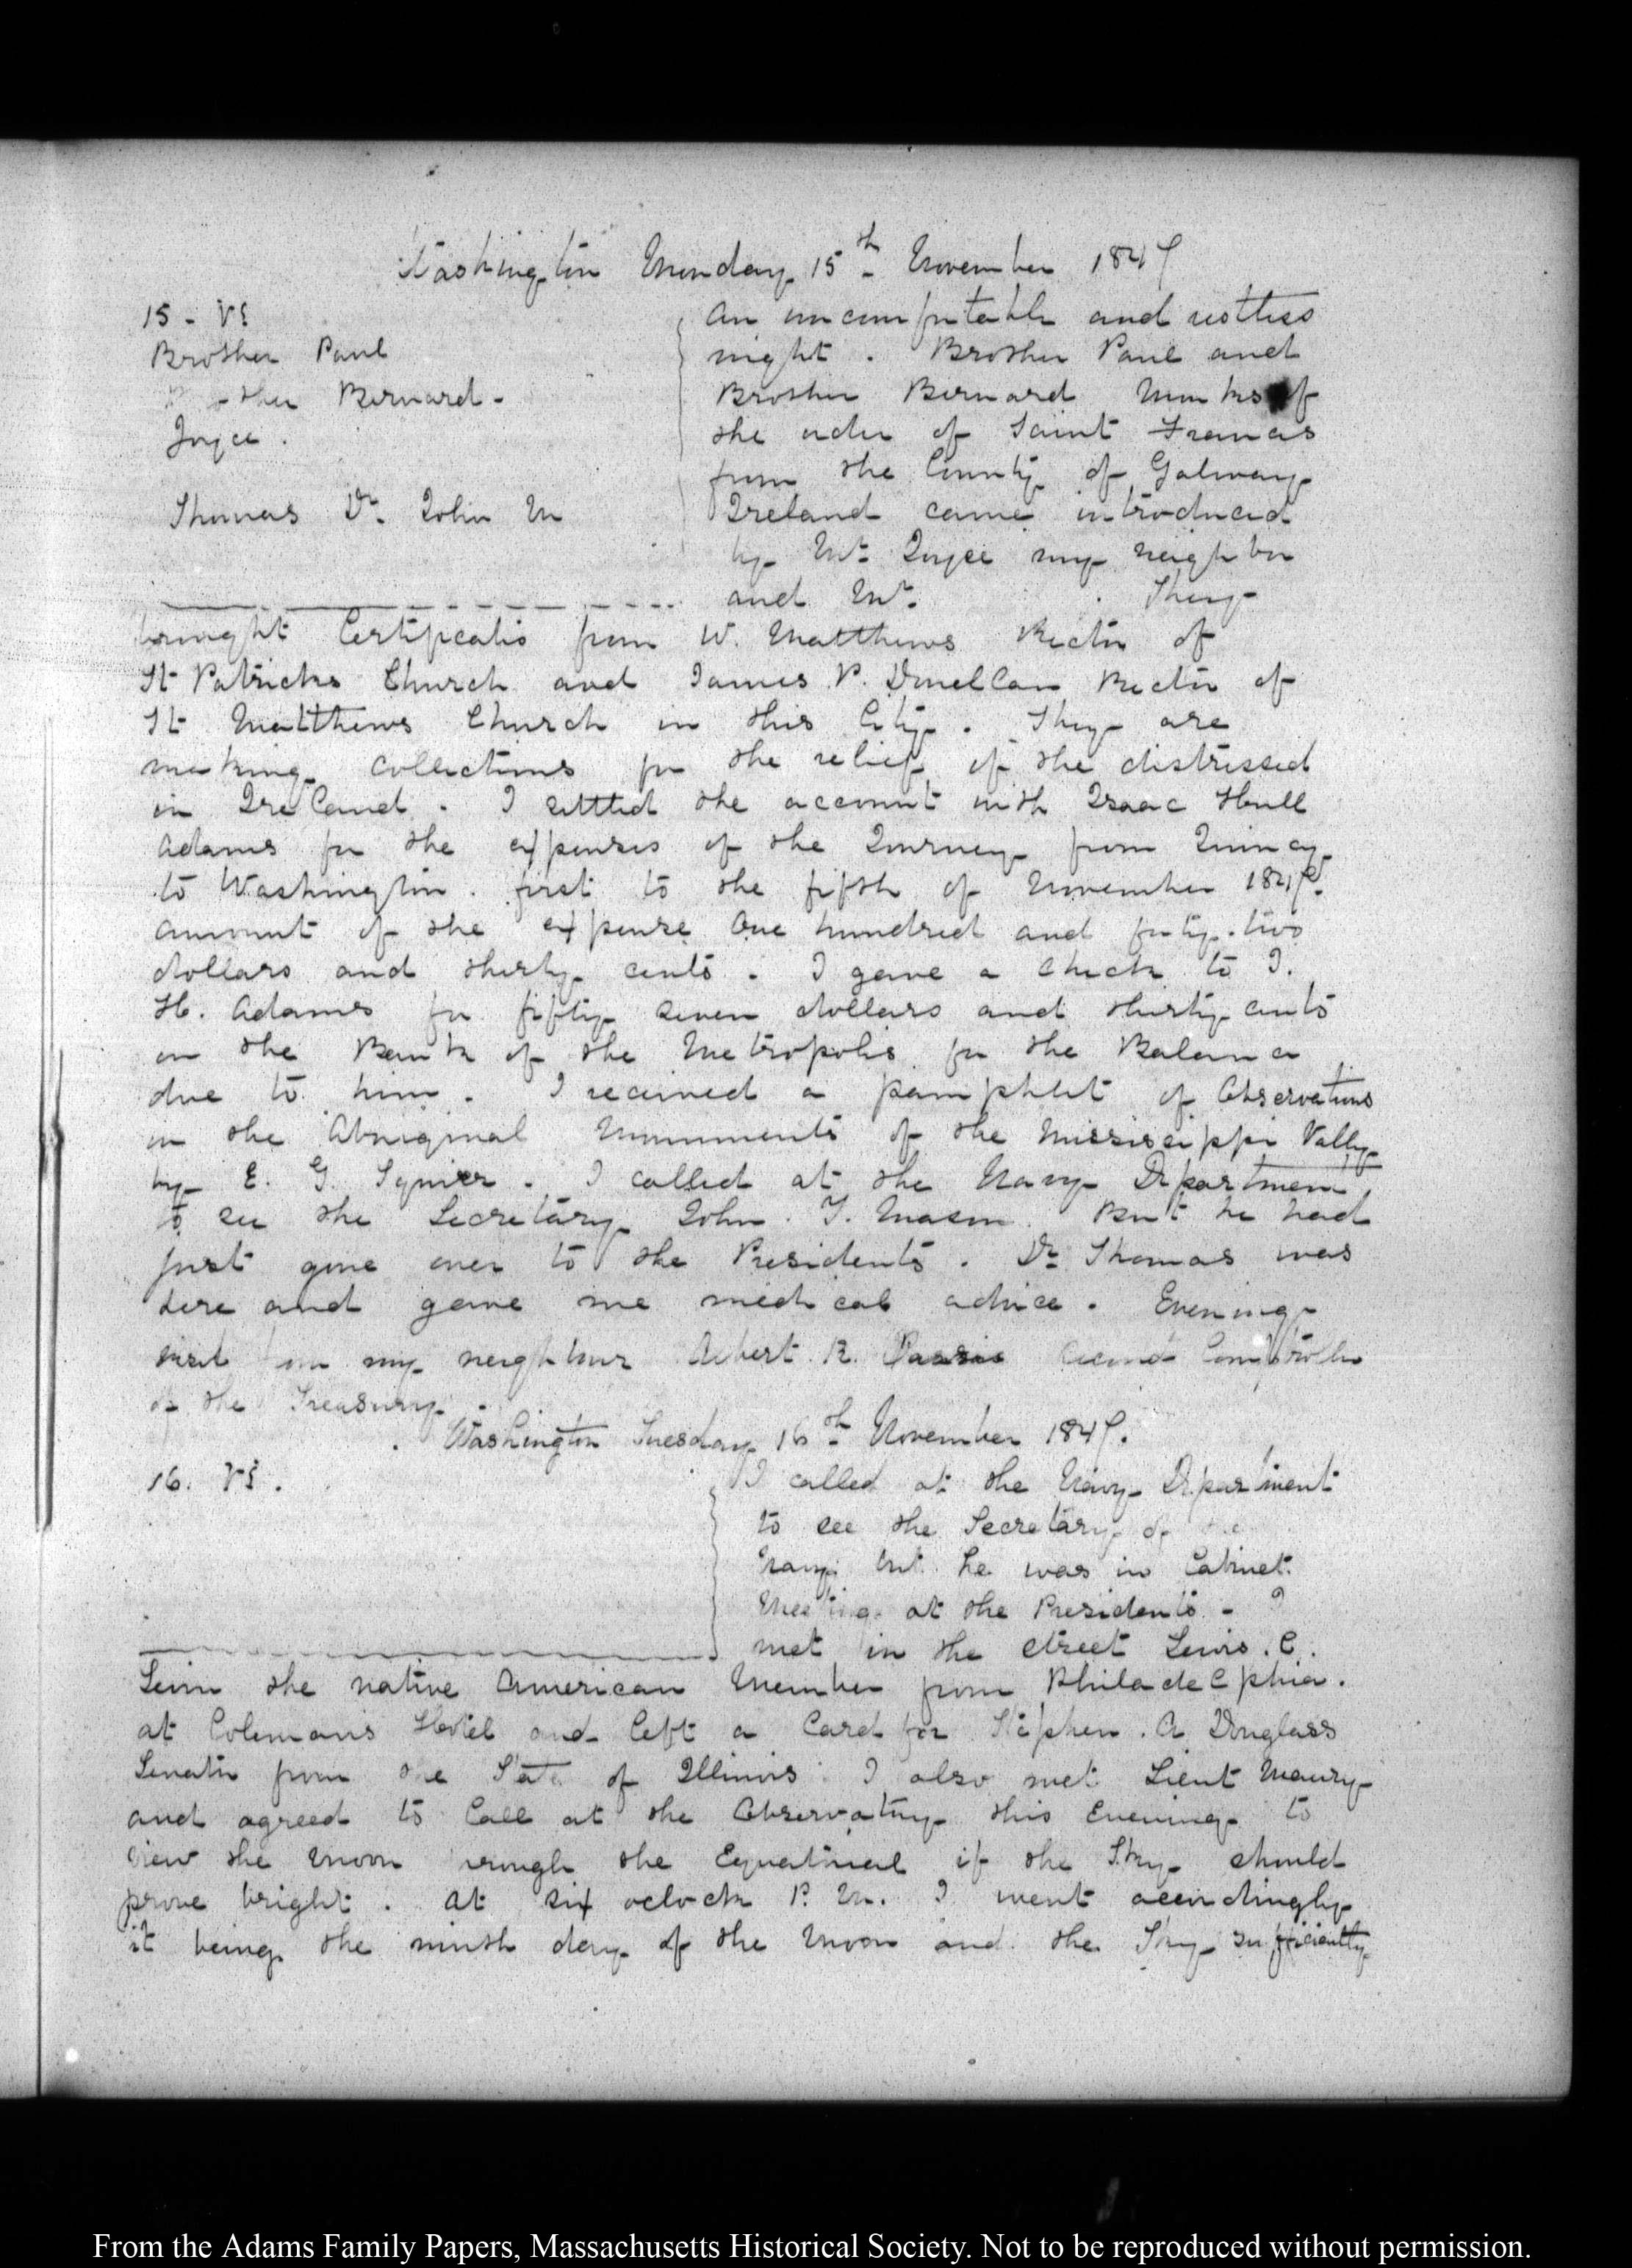 Washington Monday 15th November 1847
15 - VI
Brother Paul
Brother Bernard -
Joyce .
Thomas Dr John M
An uncomfortable and restless
night . Brother Paul and
Brother Bernard Monks of
the order of Saint Francis
from the County of Galway
Ireland came introduced
by Mr Joyce my neighbor
and Mr . They
brought Certificates from W. Matthews Rector of
St Patricks Church and James P. Donellan Rector of
St Matthews Church in this City . They are
making collections for the relief of the distressed
in Ireland . I settled the account with Isaac Hull
Adams for the expenses of the Journey from Quincy
to Washington . first to the fifth of November 1847.
amount of the expense One hundred and forty-two
dollars and thirty cents . I gave a check to I.
H. Adams for fifty seven dollars and thirty cents
on the Bank of the Metropolis for the Balance
due to him . I received a pamphlet of Observations
on the Aboriginal Monuments of the Mississippi Vally
by E. G. Squier . I called at the Navy Department
to see the Secretary John . Y. Mason . But he had
just gone over to the Presidents . Dr Thomas was
here and gave me medical advice . Evening
visit from my neighbour Albert . R. Parris Second Comptroller
of the Treasury .
Washington Tuesday 16th November 1847.
16. VI .
I called at the Navy Department
to see the Secretary of the
Navy but he was in Cabinet
Meeting at the Presidents - I
met in the street Lewis . C.
Levin the native American Member from Philadelphia .
at Colemans Hotel and left a Card for Stephen . A Douglass
Senator from the State of Illinois . I also met Lieut Maury
and agreed to Call at the Observatory this Evening to
view the Moon through the Equatorial if the Sky should
prove bright . At six oclock P. M. I went accordingly
it being the ninth day of the Moon and the Sky sufficiently
From the Adams Family Papers, Massachusetts Historical Society. Not to be reproduced without permission.